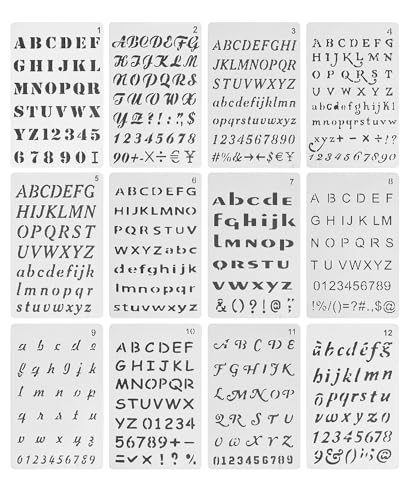 1
ABCDEF
GHIJKL
MNOPQR
STUVWX
YZ12345
67890I
2
ABCDEFG
HIJKLMN
OPQRS
TUVWX
YZ?!:,"$
12345678
90+-×÷€¥
3
ABCDEFGH
IJKLMNOPQR
STUVWXYZ
abcdefghijklmn
opqrstuvwxyz
1234567890
#%&→←$€¥
4
ABCDEFG
HIJKLMN
OPQRST
UVWXYZ
abcdefghijkl
mnopqrstuvw
xyz+-×÷!?
1234567890
5
ABCDEFG
HIJKLMN
OPQRST
UVWXYZ
abcdefijk
lmnopqr
stuvwxyz
6
ABCDEFG
HIJKLMNO
PQRSTUV
WXYZabc
defghijk
lmnopqr
stuvwxyz
7
abcde
fghijk
lmnop
qrstu
vwxyz
&()?!@;
8
ABCDE
GHIJKLM
NOPQRS
TUVWXYZ
0123456789
!%/()=?#.,$@
9
abcde
fghijk
lmnop
qrstu
vwxyz
0123456789
10
ABCDEF
GHIJKL
MNOPQR
STUVWX
YZ01234
56789+−
=✓×!?%
11
ABCDE
FGHIJK
LMNOP
QRSTU
VWXYZ
0123456789
12
àbcdéfg
hijklmn
ôpqrstu
vwxyzo
12345678
9&()!?@